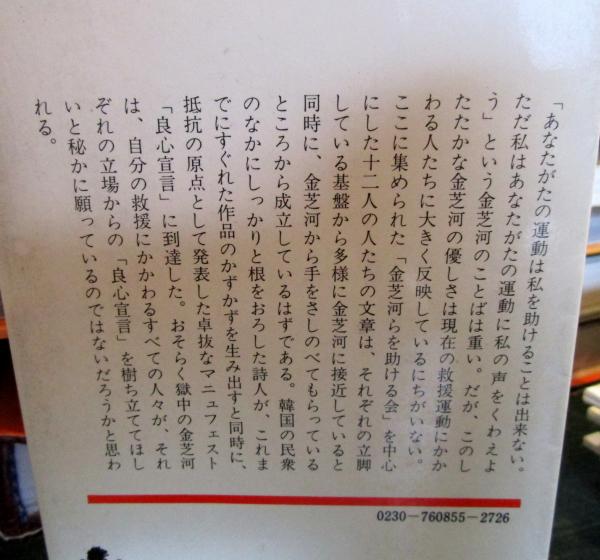 「あなたがたの運動は私を助けることは出来ない。
ただ私はあなたがたの運動に私の声をくわえよ
う」という金芝河のことばは重い。だが、このし
たたかな金芝河の優しさは現在の救援運動にかか
わる人たちに大きく反映しているにちがいない。
ここに集められた「金芝河らを助ける会」を中心
にした十二人の人たちの文章は、それぞれの立脚
している基盤から多様に金芝河に接近していると
同時に、金芝河から手をさしのべてもらっている
ところから成立しているはずである。韓国の民衆
のなかにしっかりと根をおろした詩人が、これま
でにすぐれた作品のかずかずを生み出すと同時に、
抵抗の原点として発表した卓抜なマニュフェスト
「良心宣言」に到達した。おそらく獄中の金芝河
は、自分の救援にかかわるすべての人々が、それ
ぞれの立場からの「良心宣言」を樹ち立ててほし
いと秘かに願っているのではないだろうかと思わ
れる。
0230-760855-2726